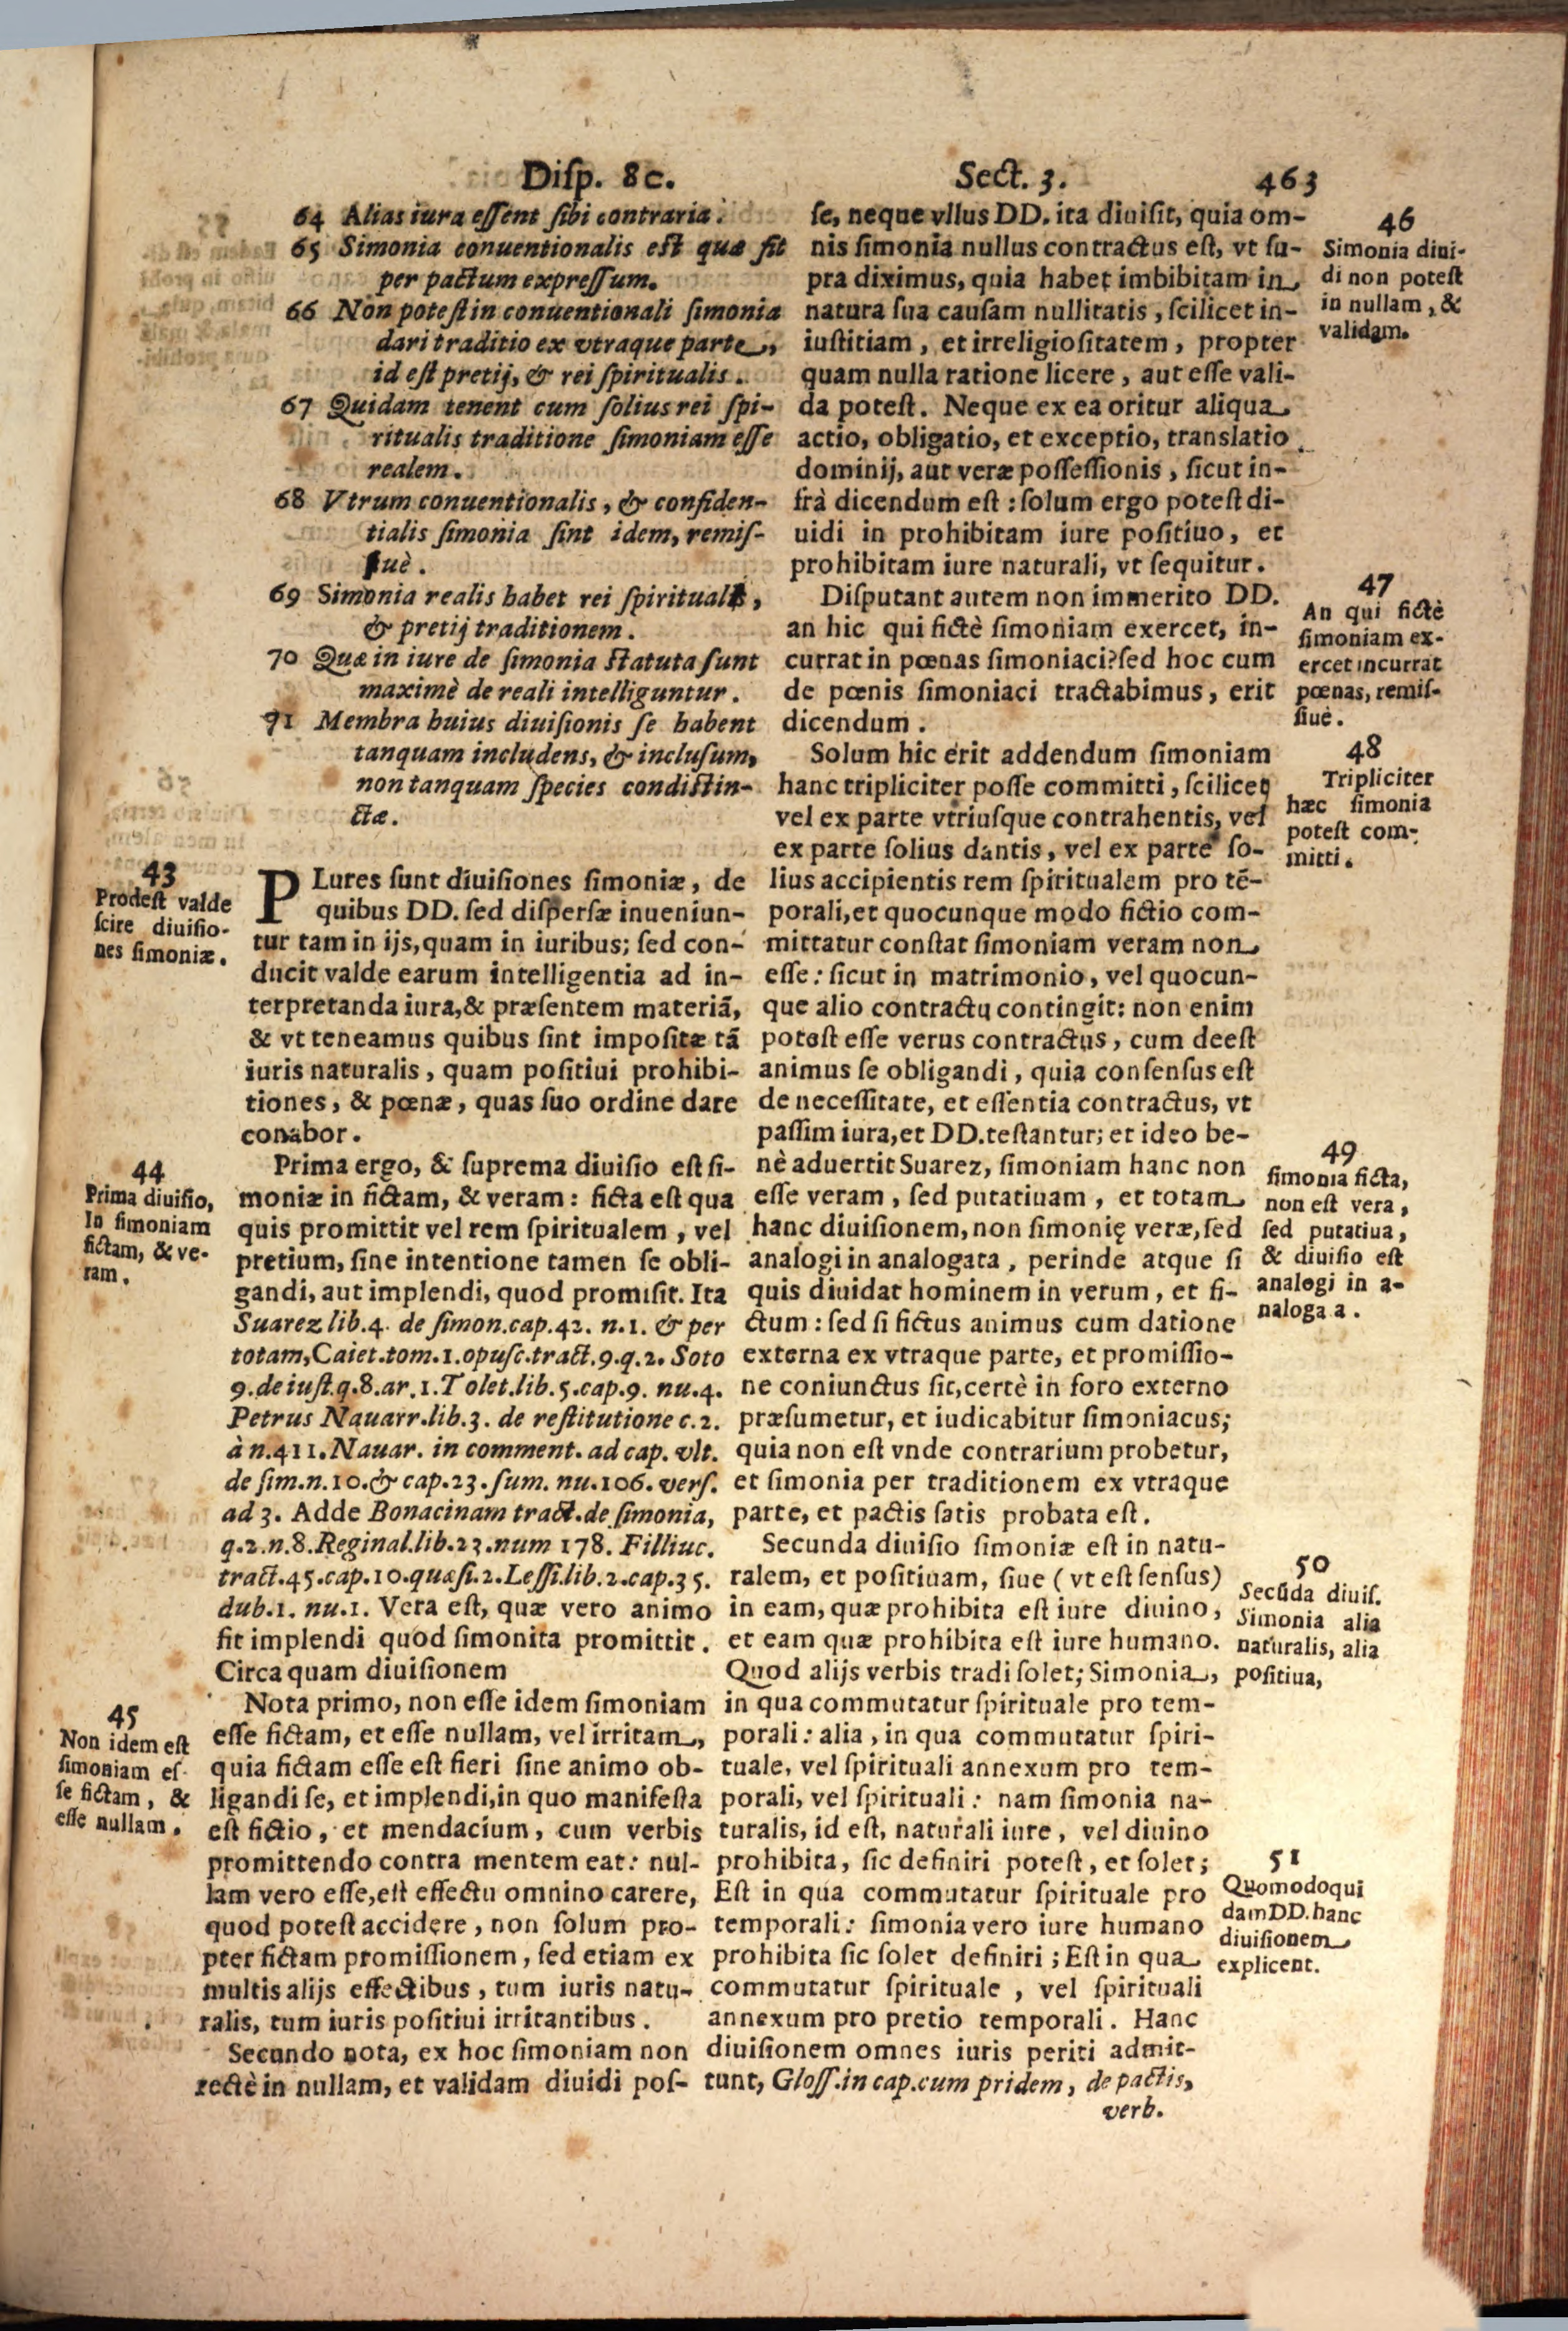 Disp. 80. Sect. 3. 463
64 Alias iura eſſent ſibi contraria.
65 Simonia conuentionalis eſt quæ fit
per pactum expreſſum.
66 Non poteſt in conuentionali ſimonia
dari traditio ex vtraque parte,
id eſt pretij, & rei ſpiritualis.
67 Quidam tenent cum ſolius rei ſpi-
ritualis traditione ſimoniam eſſe
realem.
68 Vtrum conuentionalis, & confiden-
tialis ſimonia ſint idem, remiſ-
ſiuè.
69 Simonia realis habet rei ſpiritualis,
& pretij traditionem.
70 Quæ in iure de ſimonia ſtatuta ſunt
maximè de reali intelliguntur.
71 Membra huius diuiſionis ſe habent
tanquam includens, & incluſum,
non tanquam ſpecies condiſtin-
ctæ.
43
Prodeſt valde
ſcire diuiſio-
nes ſimoniæ.
PLures ſunt diuiſiones ſimoniæ, de
quibus DD. ſed diſperſæ inueniun-
tur tam in ijs, quam in iuribus; ſed con-
ducit valde earum intelligentia ad in-
terpretanda iura, & præſentem materiã,
& vt teneamus quibus ſint impoſitæ tã
iuris naturalis, quam poſitiui prohibi-
tiones, & pœnæ, quas ſuo ordine dare
conabor.
44
Prima diuiſio,
In ſimoniam
fictam, & ve-
ram.
Prima ergo, & ſuprema diuiſio eſt ſi-
moniæ in fictam, & veram: ficta eſt qua
quis promittit vel rem ſpiritualem, vel
pretium, ſine intentione tamen ſe obli-
gandi, aut implendi, quod promiſit. Ita
Suarez lib.4. de ſimon.cap.42. n.1. & per
totam, Caiet.tom.1.opuſc.tract.9.q.2. Soto
9.de iuſt.q.8.ar.1.Tolet.lib.5.cap.9. nu.4.
Petrus Nauarr.lib.3. de reſtitutione c.2.
à n.411.Nauar. in comment. ad cap. vlt.
de ſim.n.10.& cap.23.ſum. nu.106. verſ.
ad 3. Adde Bonacinam tract.de ſimonia,
q.2.n.8.Reginal.lib.23.num 178. Filliuc.
tract.45.cap.10.quæſi.2.Leſſi.lib.2.cap.35.
dub.1. nu.1. Vera eſt, quæ vero animo
fit implendi quod ſimonita promittit.
Circa quam diuiſionem
45
Non idem eſt
ſimoniam eſ-
ſe fictam, &
eſſe nullam.
Nota primo, non eſſe idem ſimoniam
eſſe fictam, et eſſe nullam, vel irritam,
quia fictam eſſe eſt fieri ſine animo ob-
ligandi ſe, et implendi, in quo manifeſta
eſt fictio, et mendacium, cum verbis
promittendo contra mentem eat: nul-
lam vero eſſe, eſt effectu omnino carere,
quod poteſt accidere, non ſolum pro-
pter fictam promiſſionem, ſed etiam ex
multis alijs effectibus, tum iuris natu-
ralis, tum iuris poſitiui irritantibus.
Secundo nota, ex hoc ſimoniam non
rectè in nullam, et validam diuidi poſ-
ſe, neque vllus DD. ita diuiſit, quia om-
nis ſimonia nullus contractus eſt, vt ſu-
pra diximus, quia habet imbibitam in
natura ſua cauſam nullitatis, ſcilicet in-
iuſtitiam, et irreligioſitatem, propter
quam nulla ratione licere, aut eſſe vali-
da poteſt. Neque ex ea oritur aliqua
actio, obligatio, et exceptio, translatio
dominij, aut veræ poſſeſſionis, ſicut in-
frà dicendum eſt: ſolum ergo poteſt di-
uidi in prohibitam iure poſitiuo, et
prohibitam iure naturali, vt ſequitur.
46
Simonia diui-
di non poteſt
in nullam, &
validam.
Diſputant autem non immerito DD.
an hic qui fictè ſimoniam exercet, in-
currat in pœnas ſimoniaci? ſed hoc cum
de pœnis ſimoniaci tractabimus, erit
dicendum.
47
An qui fictè
ſimoniam ex-
ercet incurrat
pœnas, remiſ-
ſiuè.
Solum hic erit addendum ſimoniam
hanc tripliciter poſſe committi, ſcilicet
vel ex parte vtriuſque contrahentis, vel
ex parte ſolius dantis, vel ex parte ſo-
lius accipientis rem ſpiritualem pro tẽ-
porali, et quocunque modo fictio com-
mittatur conſtat ſimoniam veram non
eſſe: ſicut in matrimonio, vel quocun-
que alio contractu contingit: non enim
poteſt eſſe verus contractus, cum deeſt
animus ſe obligandi, quia conſenſus eſt
de neceſſitate, et eſſentia contractus, vt
paſſim iura, et DD. teſtantur; et ideo be-
nè aduertit Suarez, ſimoniam hanc non
eſſe veram, ſed putatiuam, et totam
hanc diuiſionem, non ſimonię veræ, ſed
analogi in analogata, perinde atque ſi
quis diuidat hominem in verum, et fi-
ctum: ſed ſi fictus animus cum datione
externa ex vtraque parte, et promiſſio-
ne coniunctus ſit, certè in foro externo
præſumetur, et iudicabitur ſimoniacus;
quia non eſt vnde contrarium probetur,
et ſimonia per traditionem ex vtraque
parte, et pactis ſatis probata eſt.
48
Tripliciter
hæc ſimonia
poteſt com-
mitti.
49
ſimonia ficta,
non eſt vera,
ſed putatiua,
& diuiſio eſt
analogi in a-
naloga a.
Secunda diuiſio ſimoniæ eſt in natu-
ralem, et poſitiuam, ſiue (vt eſt ſenſus)
in eam, quæ prohibita eſt iure diuino,
et eam quæ prohibita eſt iure humano.
Quod alijs verbis tradi ſolet; Simonia,
in qua commutatur ſpirituale pro tem-
porali: alia, in qua commutatur ſpiri-
tuale, vel ſpirituali annexum pro tem-
porali, vel ſpirituali: nam ſimonia na-
turalis, id eſt, naturali iure, vel diuino
prohibita, ſic definiri poteſt, et ſolet;
Eſt in qua commutatur ſpirituale pro
temporali: ſimonia vero iure humano
prohibita ſic ſolet definiri; Eſt in qua
commutatur ſpirituale, vel ſpirituali
annexum pro pretio temporali. Hanc
diuiſionem omnes iuris periti admit-
tunt, Gloſſ.in cap.cum pridem, de pactis,
verb.
50
Secũda diuiſ.
Simonia alia
naturalis, alia
poſitiua,
51
Quomodo qui
dam DD. hanc
diuiſionem
explicent.